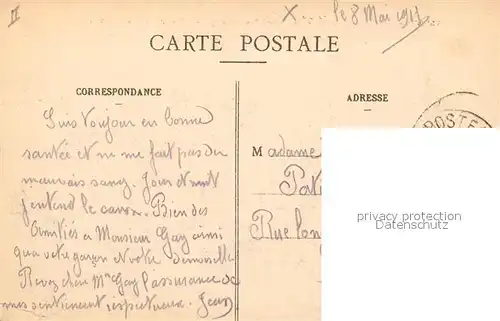 II
X... le 8 Mai 1915
CARTE POSTALE
CORRESPONDANCE
ADRESSE
POSTE
Suis toujour en bonne
santée et ne me fait pas du
mauvais sang. Jour et nuit
j'entend le canon. Bien des
Amitiés a Monsieur Gay ainsi
qua votre garçon et votre demoiselle
Recevez chere Mme Gay l'assurance de
mes sentiment respectueux. Jean
Madame
Rue
privacy protection
Datenschutz